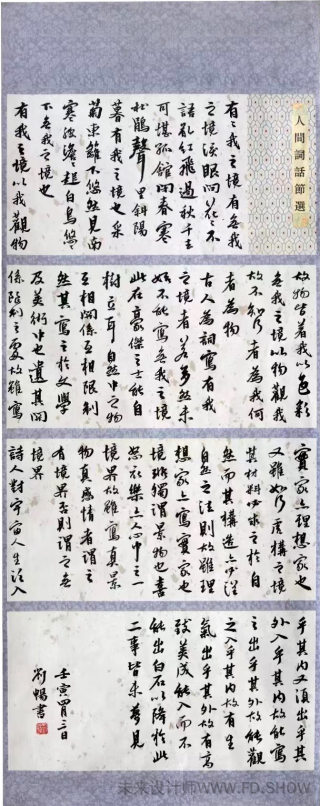 人間詞話節選
有〻我之境有無我
之境淚眼問花〻不
語亂紅飛過秋千去
可堪孤館閉春寒
杜鵑聲里斜陽
暮有我之境也采
菊東籬下悠然見南
寒波澹〻起白鳥悠〻
下無我之境也
有我之境以我觀物
故物皆著我之色彩
無我之境以物觀我
故不知何者為我何
者為物
古人為詞寫有我
之境者為多然未
始不能寫無我之境
此在豪傑之士能自
樹立耳自然中之物
互相關係互相限制
然其寫之於文學
及美術中也遺其關
係限制之處故雖寫
實家亦理想家也
又雖如何虛構之境
其材料必求之於自
然而其構造亦必從
自然之法則故雖理
想家亦寫實家也
境非獨謂景物也喜
怒哀樂亦人心中之一
境界故能寫真景
物真感情者謂之
有境界否則謂之無
境界
詩人對宇宙人生須入
乎其內又須出乎其
外入乎其內故能寫
之出乎其外故能觀
之入乎其內故有生
氣出乎其外故有高
致美成能入而不
能出白石以降於此
二事皆未夢見
壬寅四月三日
劉暢書
未来设计师WWW.FD.SHOW